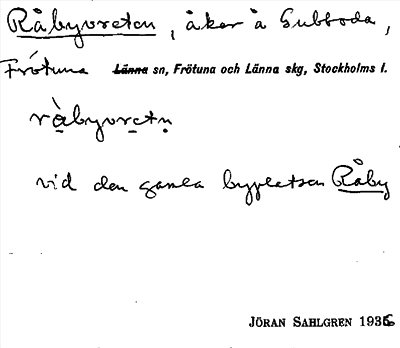 Råbyvreten, åker å Gubboda,
Frötuna Länna sn, Frötuna och Länna skg, Stockholms l.
råbyvretn
vid den gamla byplatsen Råby
JÖRAN SAHLGREN 1936